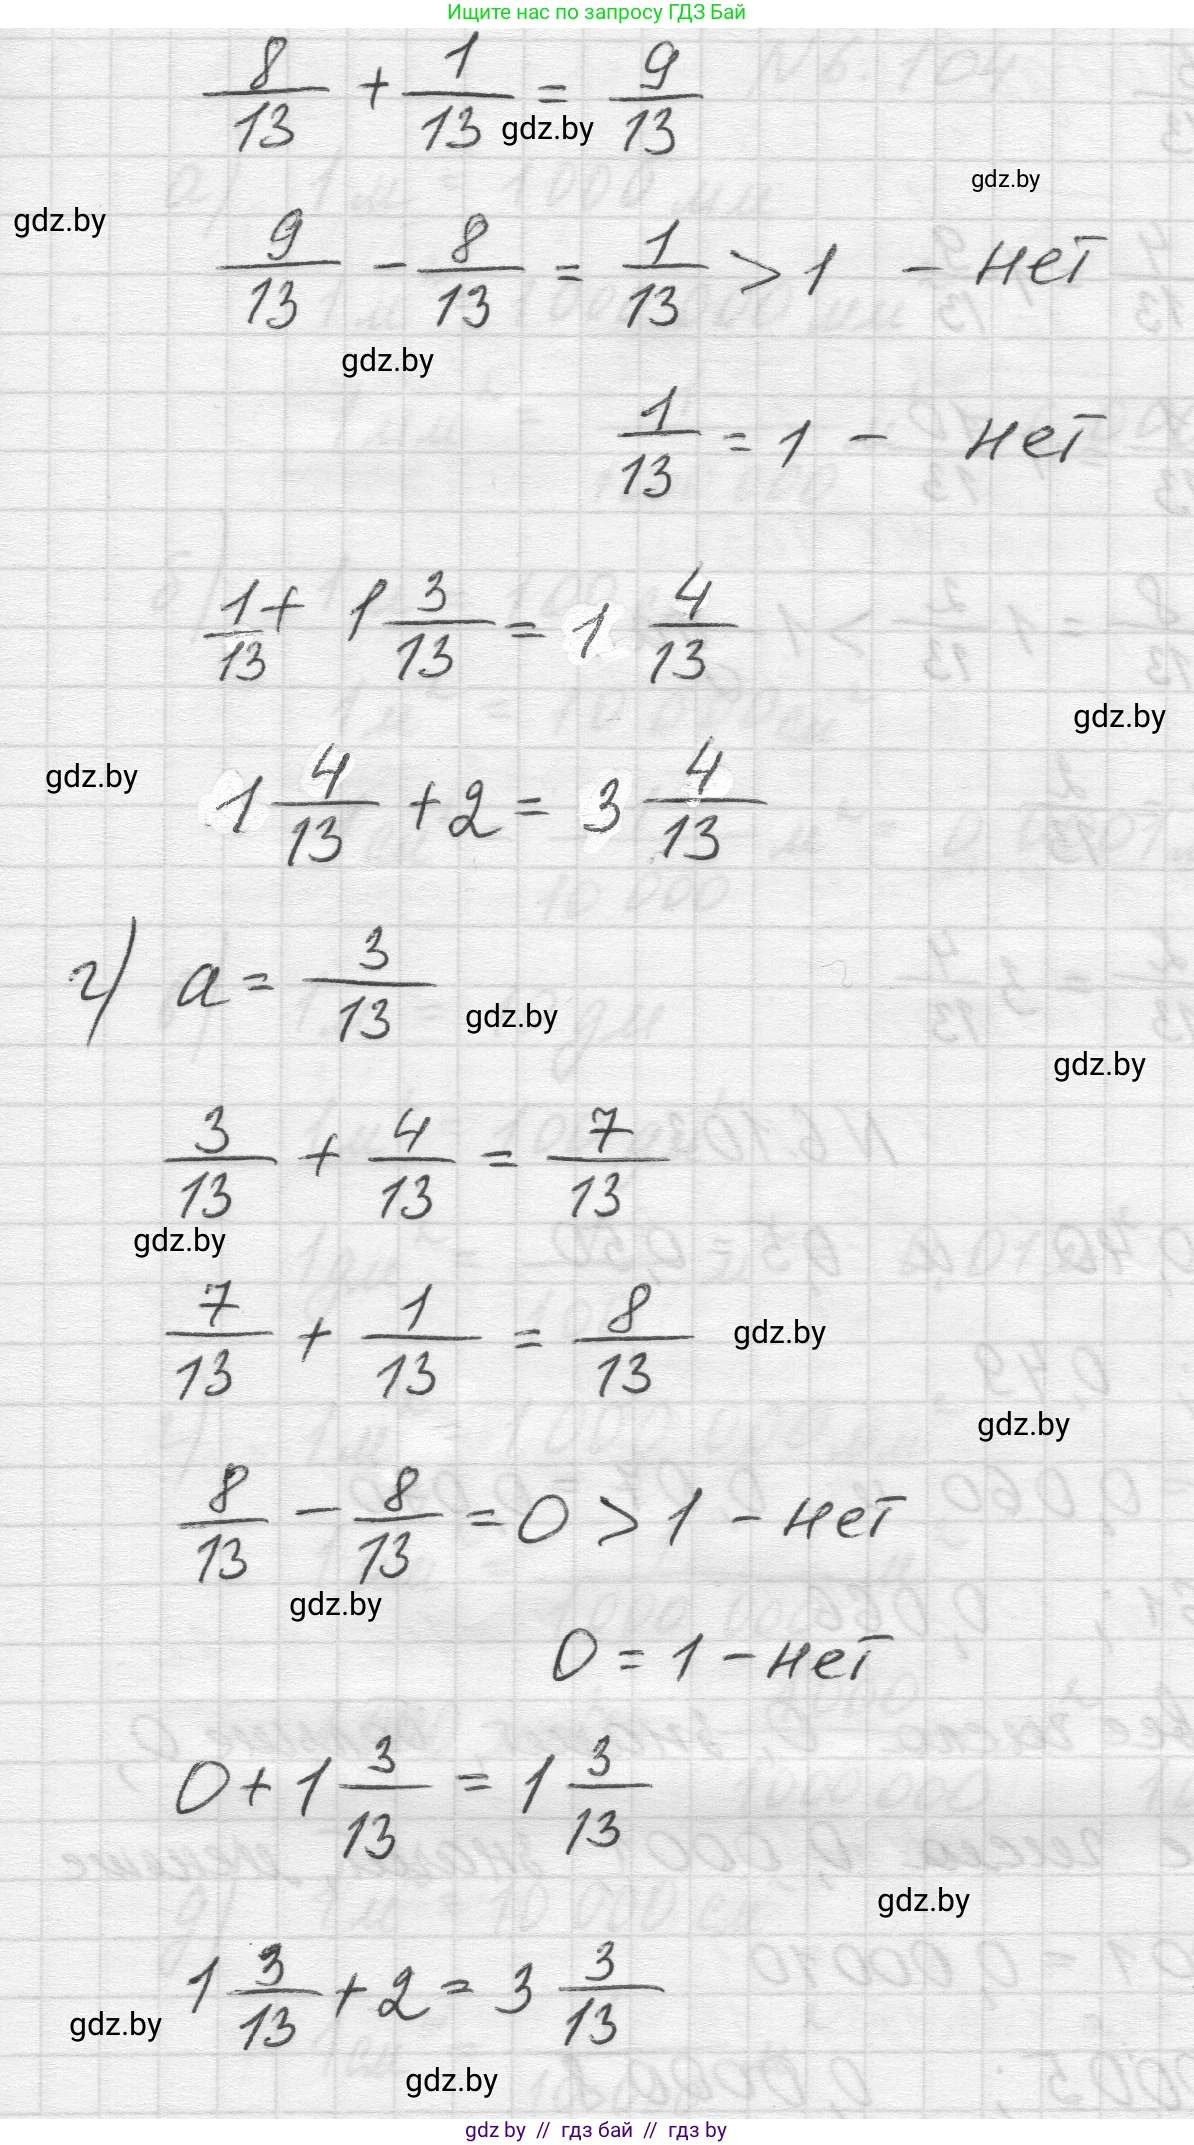 Ищите нас по запросу ГДЗ Бай
8/13 + 1/13 = 9/13
gdz.by
gdz.by
gdz.by
9/13 - 8/13 = 1/13 > 1 - нет
gdz.by
1/13 = 1 - нет
1/13 + 1 3/13 = 1 4/13
gdz.by
gdz.by
1 4/13 + 2 = 3 4/13
г) a = 3/13
gdz.by
gdz.by
3/13 + 4/13 = 7/13
gdz.by
7/13 + 1/13 = 8/13
gdz.by
gdz.by
8/13 - 8/13 = 0 > 1 - нет
gdz.by
0 = 1 - нет
0 + 1 3/13 = 1 3/13
gdz.by
1 3/13 + 2 = 3 3/13
gdz.by
gdz.by
gdz by // гдз бай // гдз by